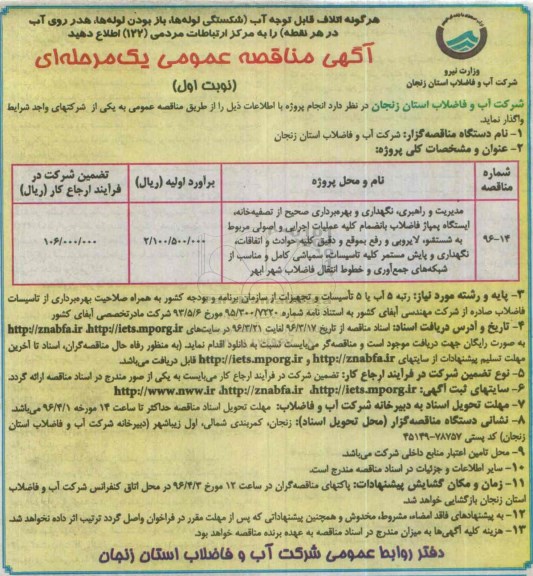 هرگونه اتلاف قابل توجه آب (شکستگی لوله‌ها، باز بودن لوله‌ها، هدر روی آب
در هر نقطه) را به مرکز ارتباطات مردمی (۱۲۲) اطلاع دهید
آگهی مناقصه عمومی یک‌مرحله‌ای
(نوبت اول)
وزارت نیرو
شرکت آب و فاضلاب استان زنجان
شرکت آب و فاضلاب استان زنجان در نظر دارد انجام پروژه با اطلاعات ذیل را از طریق مناقصه عمومی به یکی از شرکتهای واجد شرایط
واگذار نماید.
۱- نام دستگاه مناقصه‌گزار: شرکت آب و فاضلاب استان زنجان
۲- عنوان و مشخصات کلی پروژه:
شماره مناقصه
نام و محل پروژه
برآورد اولیه (ریال)
تضمین شرکت در فرآیند ارجاع کار (ریال)
۹۶-۱۴
مدیریت و راهبری، نگهداری و بهره‌برداری صحیح از تصفیه‌خانه،
ایستگاه پمپاژ فاضلاب بانضمام کلیه عملیات اجرایی و اصولی مربوط
به شستشو، لایروبی و رفع بموقع و دقیق کلیه حوادث و اتفاقات،
نگهداری و پایش مستمر کلیه تاسیسات، سمپاشی کامل و مناسب از
شبکه‌های جمع‌آوری و خطوط انتقال فاضلاب شهر ابهر
۲/۱۰۰/۵۰۰/۰۰۰
۱۰۶/۰۰۰/۰۰۰
۳- پایه و رشته مورد نیاز: رتبه ۵ آب یا ۵ تأسیسات و تجهیزات از سازمان برنامه و بودجه کشور به همراه صلاحیت بهره‌برداری از تاسیسات
فاضلاب صادره از شرکت مهندسی آبفای کشور به استناد نامه شماره ۹۵/۳۰۰/۷۲۲۰ مورخ ۹۳/۵/۶ شرکت مادرتخصصی آبفای کشور
۴- تاریخ و آدرس دریافت اسناد: اسناد مناقصه از تاریخ ۹۶/۳/۱۷ لغایت ۹۶/۳/۲۱ در سایت‌های http://iets.mporg.ir، http://znabfa.ir
به صورت رایگان جهت دریافت موجود است و مناقصه‌گر می‌بایست نسبت به دانلود اقدام نماید. (به منظور رفاه حال مناقصه‌گران، اسناد تا آخرین
مهلت تسلیم پیشنهادات از سایتهای http://znabfa.ir و http://iets.mporg.ir قابل دریافت می‌باشد.
۵- نوع تضمین شرکت در فرآیند ارجاع کار: تضمین شرکت در فرآیند ارجاع کار می‌بایست به یکی از صور مندرج در اسناد مناقصه ارائه گردد.
۶- سایتهای ثبت آگهی: http://iets.mporg.ir، http://znabfa.ir، http://www.nww.ir
۷- مهلت تحویل اسناد به دبیرخانه شرکت آب و فاضلاب: مهلت تحویل اسناد مناقصه حداکثر تا ساعت ۱۴ مورخه ۹۶/۴/۱ می‌باشد.
۸- نشانی دستگاه مناقصه‌گزار (محل تحویل اسناد): زنجان، کمربندی شمالی، اول زیباشهر (دبیرخانه شرکت آب و فاضلاب استان
زنجان) کد پستی ۷۸۷۵۷-۴۵۱۳۹
۹- محل تامین اعتبار منابع داخلی شرکت می‌باشد.
۱۰- سایر اطلاعات و جزئیات در اسناد مناقصه مندرج است.
۱۱- زمان و مکان گشایش پیشنهادات: پاکتهای مناقصه‌گران در ساعت ۱۲ مورخ ۹۶/۴/۳ در محل اتاق کنفرانس شرکت آب و فاضلاب
استان زنجان بازگشایی خواهد شد.
۱۲- به پیشنهادهای فاقد امضاء، مشروط، مخدوش و همچنین پیشنهاداتی که پس از مهلت مقرر در فراخوان واصل گردد ترتیب اثر داده نخواهد شد.
۱۳- هزینه کلیه آگهی‌ها به میزان مندرج در اسناد مناقصه به عهده برنده مناقصه خواهد بود.
دفتر روابط عمومی شرکت آب و فاضلاب استان زنجان